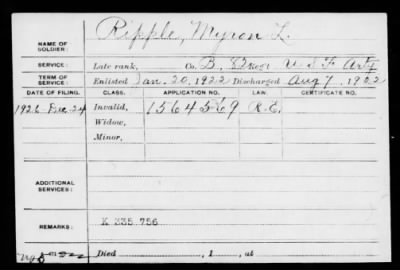 Ripple, Myron L.
NAME OF SOLDIER:
SERVICE: Late rank, Co. B, 82 Reg't U S F Art'y
TERM OF SERVICE: Enlisted Jan. 20, 1922 Discharged Aug 7, 1922
DATE OF FILING. CLASS. APPLICATION NO. LAW. CERTIFICATE NO.
1926 Dec. 24 Invalid, 1564569 R.E.
Widow,
Minor,
ADDITIONAL SERVICES:
REMARKS: K 335 756
Died , 1 , at